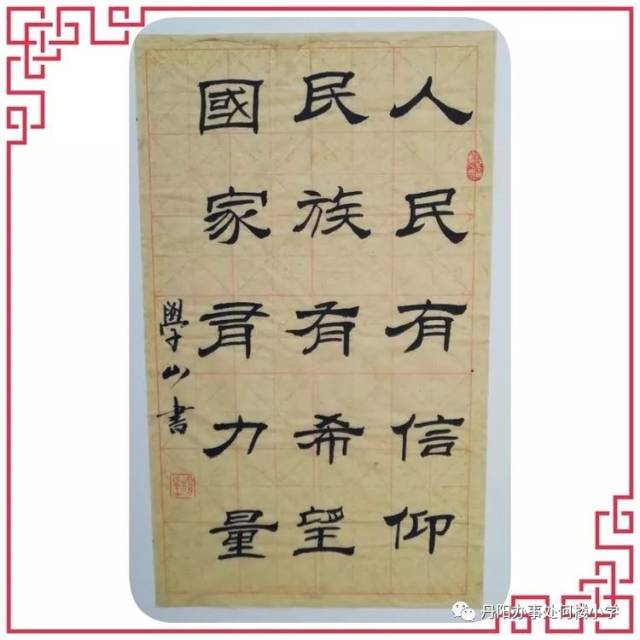 人民有信仰
民族有希望
國家有力量
學山書
丹阳办事处何楼小学